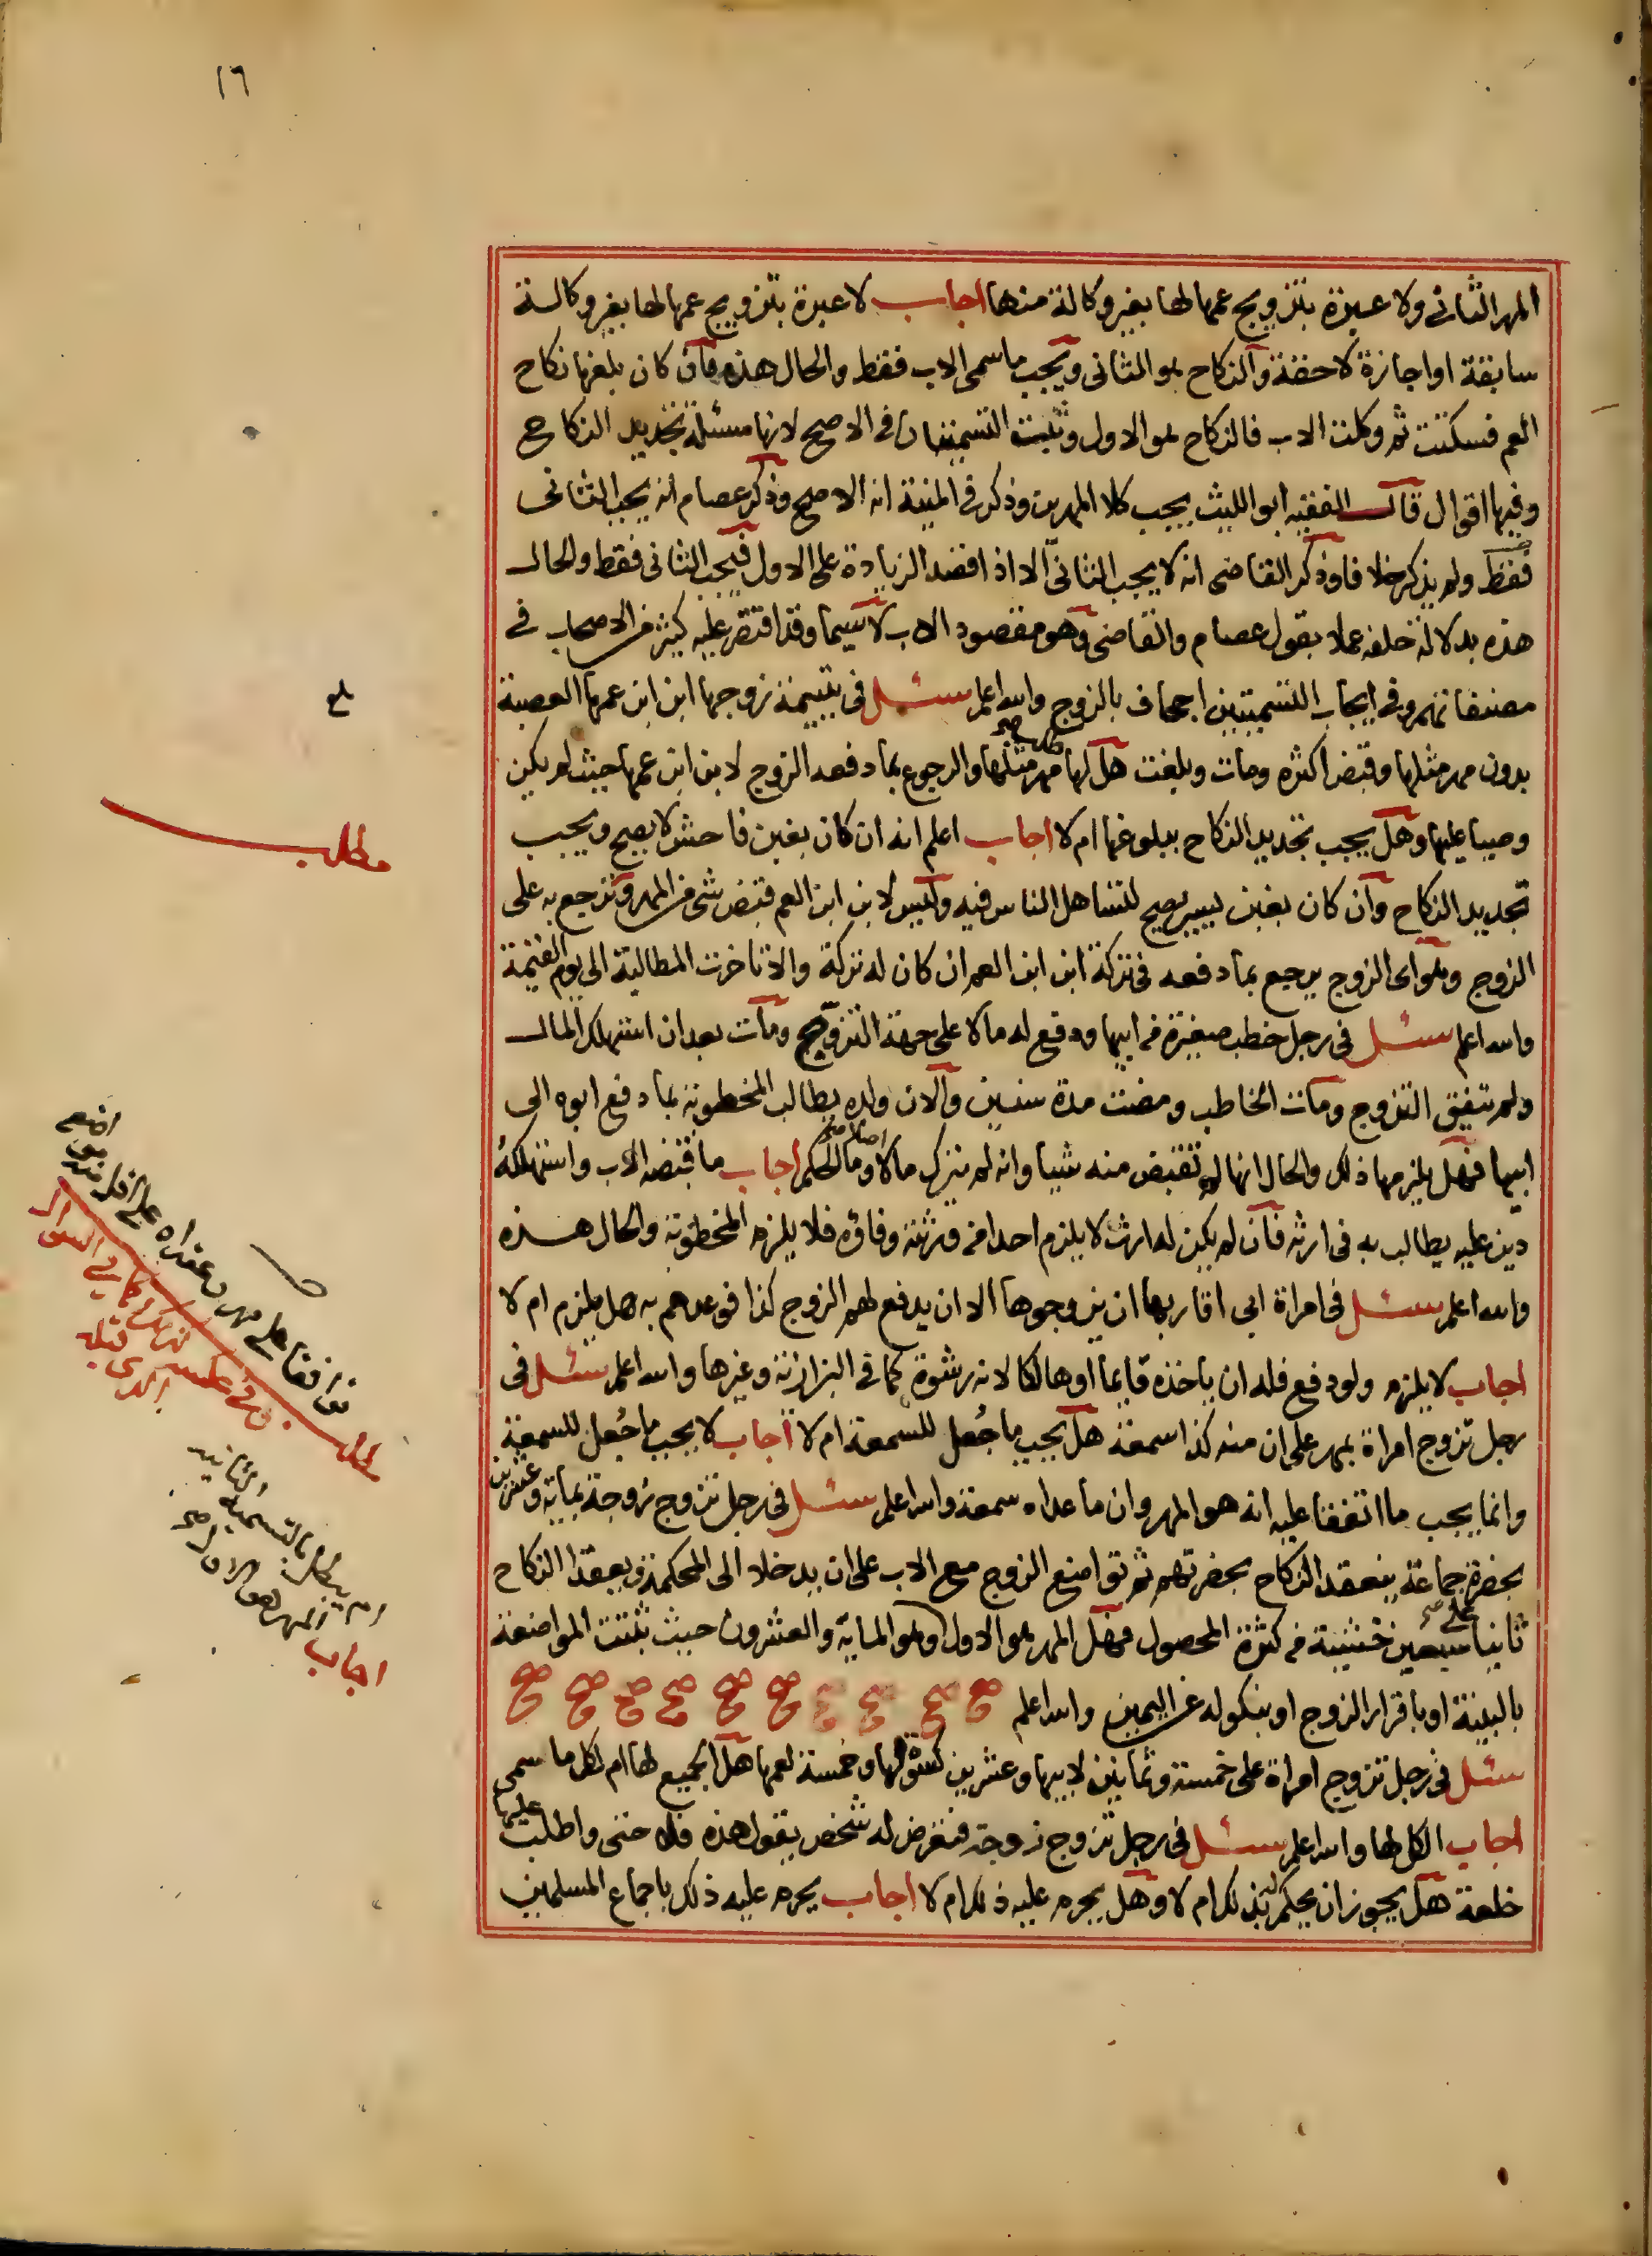 ١٦
المهر الثاني ولا عبرة بتزويج عمها لها بغير وكالة منها اجاب لا عبرة بتزويج عمها لها بغير وكالة
سابقة او اجازة لاحقة والنكاح هو الثاني ويجب ما سمى الاب فقط والحال هذه فان كان بلغها نكاح
العم فسكتت ثم وكلت الاب فالنكاح هو الاول وثبت التسميتان في الاصح لانها مسئلة تجديد النكاح
وفيها اقوال قال الفقيه ابو الليث يجب كلا المهرين وذكر في المنية انه الاصح وذكر عصام انه يجب الثاني
فقط ولم يذكر خلافا وذكر القاضي انه لا يجب الثاني الا اذا قصد الزيادة على الاول فيجب الثاني فقط والحال
هذه بدلالة خلفه عملا بقول عصام والقاضي وهو مقصود الاب لا سيما وقد اقتصر عليه كثير من الاصحاب في
مصنفاتهم وفي ايجاب التسميتين اجحاف بالزوج والله اعلم سئل في يتيمة زوجها ابن ابن عمها العصبة
بدون مهر مثلها وقبض اكثره ومات وبلغت هل لها مهر مثلها والرجوع بما دفعه الزوج لابن ابن عمها حيث لم يكن
وصيا عليها وهل يجب تجديد النكاح ببلوغها ام لا اجاب اعلم انه ان كان بغبن فاحش لا يصح ويجب
تجديد النكاح وان كان بغبن يسير يصح لتساهل الناس فيه وليس لابن ابن العم قبض شي من المهر وترجع به على
الزوج وهو اى الزوج يرجع بما دفعه في تركة ابن ابن العم ان كان له تركة والا تاخرت المطالبة الى يوم القيمة
والله اعلم سئل في رجل خطب صغيرة من ابيها ودفع له مالا على جهة التزويج ومات بعد ان استهلك المال
ولم يتفق التزوج ومات الخاطب ومضت مدة سنين والان ولده يطالب المخطوبة بما دفع ابوه الى
ابيها فهل يلزمها ذلك والحال انها لم تقبض منه شيا وانه لم يترك مالا اصلا وما الحكم اجاب ما قبضه الاب واستهلكه
دين عليه يطالب به في ارثه فان لم يكن له ارث لا يلزم احدا من ورثته وفاؤه فلا يلزم المخطوبة والحال هذه
والله اعلم سئل في امراة ابى اقاربها ان يزوجوها الا ان يدفع لهم الزوج كذا فوعدهم به هل يلزم ام لا
اجاب لا يلزم ولو دفع فله ان ياخذه قايما او هالكا لانه رشوة كما في البزازية وغيرها والله اعلم سئل في
رجل تزوج امراة بمهر على ان منه كذا سمعة هل يجب ما جُعل للسمعة ام لا اجاب لا يجب ما جُعل للسمعة
وانما يجب ما اتفقا عليه انه هو المهر وان ما عداه سمعة والله اعلم سئل في رجل تزوج زوجة بمايه وعشرين
بحضرة جماعة ينعقد النكاح بحضرتهم ثم تواضع الزوج مع الاب على ان يدخلا الى المحكمة ويعقدا النكاح
ثانيا على سبعين خشية من كثرة المحصول فهل المهر هو الاول وهو الماية والعشرون حيث ثبتت المواضعة
بالبينة او باقرار الزوج او بنكوله عن اليمين والله اعلم صح صح صح صح صح صح صح صح صح صح
سئل في رجل تزوج امراة على خمسة وثمانين لابيها وعشرين كسوة لها وخمسة لعمها هل الجميع لها ام لكل ما سمى
اجاب الكل لها والله اعلم سئل في رجل تزوج زوجة فتعرض له شخص يقول هذه فلاحتى واطلب عليها
خلعة هل يجوز ان يحكم له بذلك ام لا وهل يحرم عليه ذلك ام لا اجاب يحرم عليه ذلك باجماع المسلمين
بلغ
مطلب
مطلب توافقا على مهر وعقداه على اقل منه
وفي عكسه كما في السوال
الذي قبله
ام يبطل بالتسمية الثانية
اجاب المهر هو الاول صح